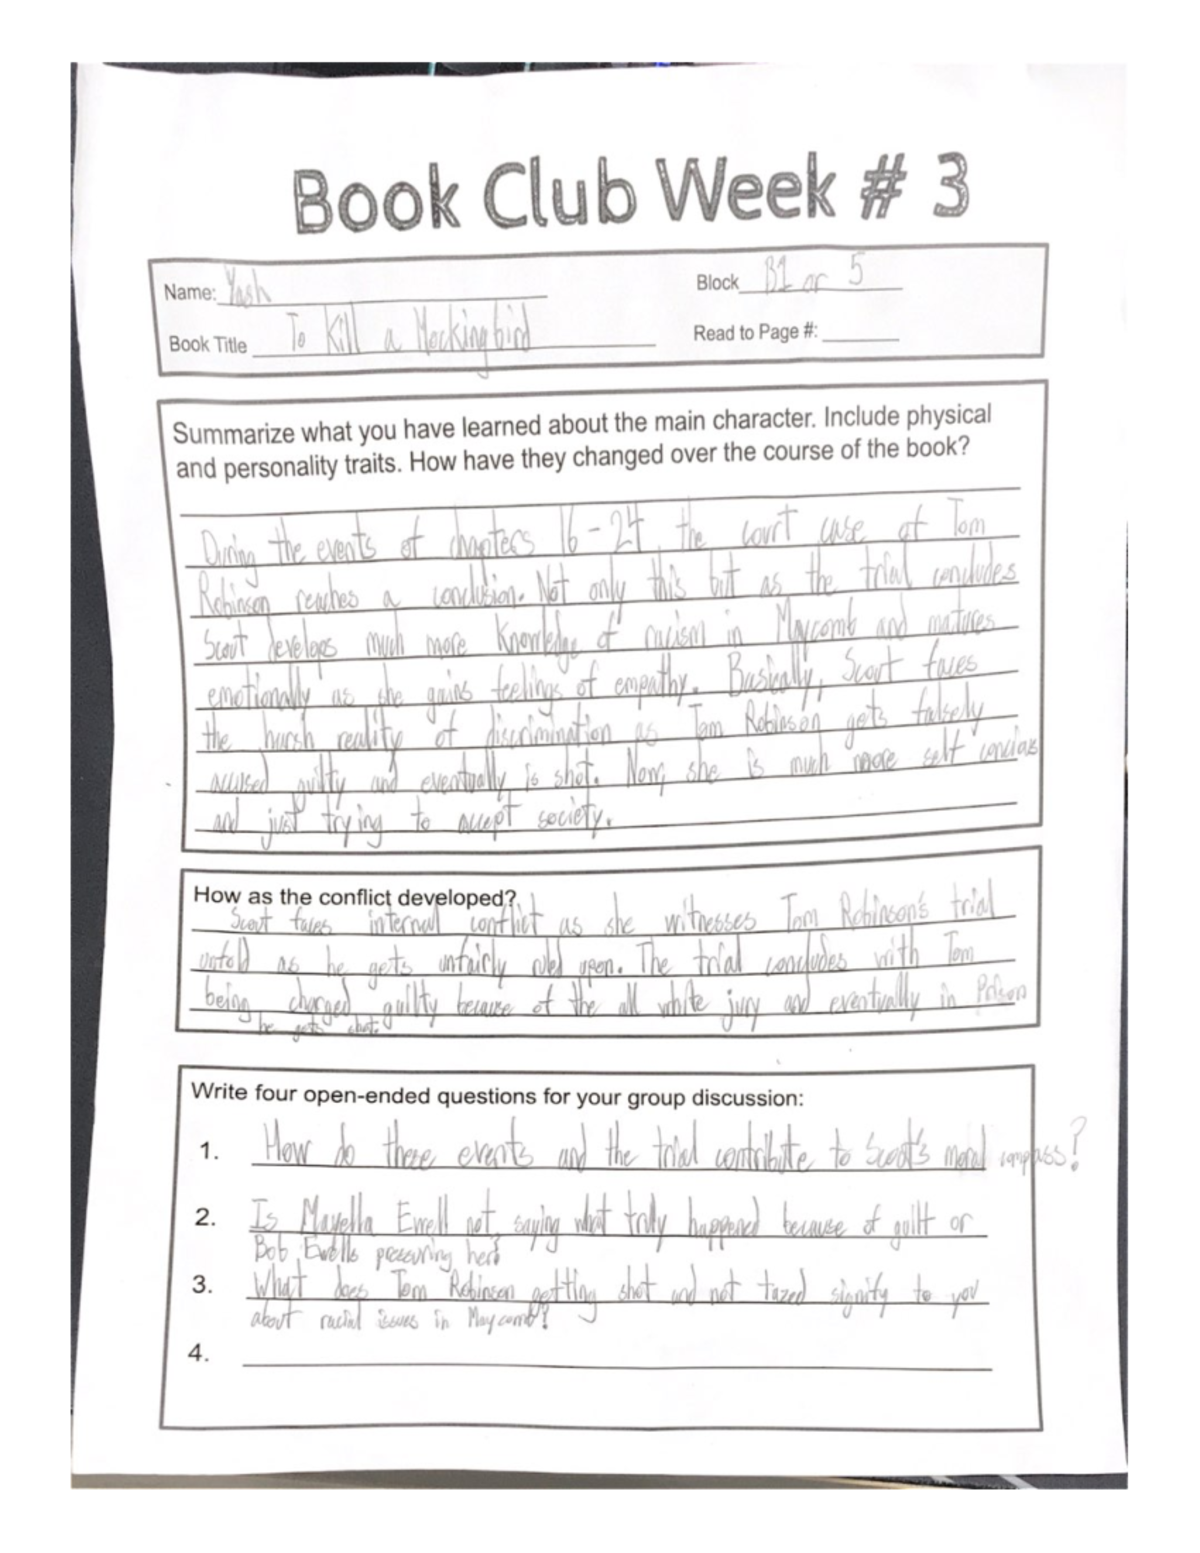 Book Club Week # 3
Name: Yash Block B1 or 5
Book Title To Kill a Mockingbird Read to Page #:
Summarize what you have learned about the main character. Include physical
and personality traits. How have they changed over the course of the book?
During the events of chapters 16-24, the court case of Tom
Robinson reaches a conclusion. Not only this but as the trial concludes
Scout develops much more knowledge of racism in Maycomb and matures
emotionally as she gains feelings of empathy. Basically, Scout faces
the harsh reality of discrimination as Tom Robinson gets falsely
accused guilty and eventually is shot. Now, she is much more self concious
and just trying to accept society.
How as the conflict developed?
Scout faces internal conflict as she witnesses Tom Robinson's trial
unfold as he gets unfairly ruled upon. The trial concludes with Tom
being charged guilty because of the all white jury and eventually in Prison
he gets shot.
Write four open-ended questions for your group discussion:
1. How do these events and the trial contribute to Scout's moral compass?
2. Is Mayella Ewell not saying what truly happened because of guilt or
Bob Ewells pressuring her?
3. What does Tom Robinson getting shot and not tazed signify to you
about racial issues in Maycomb?
4.